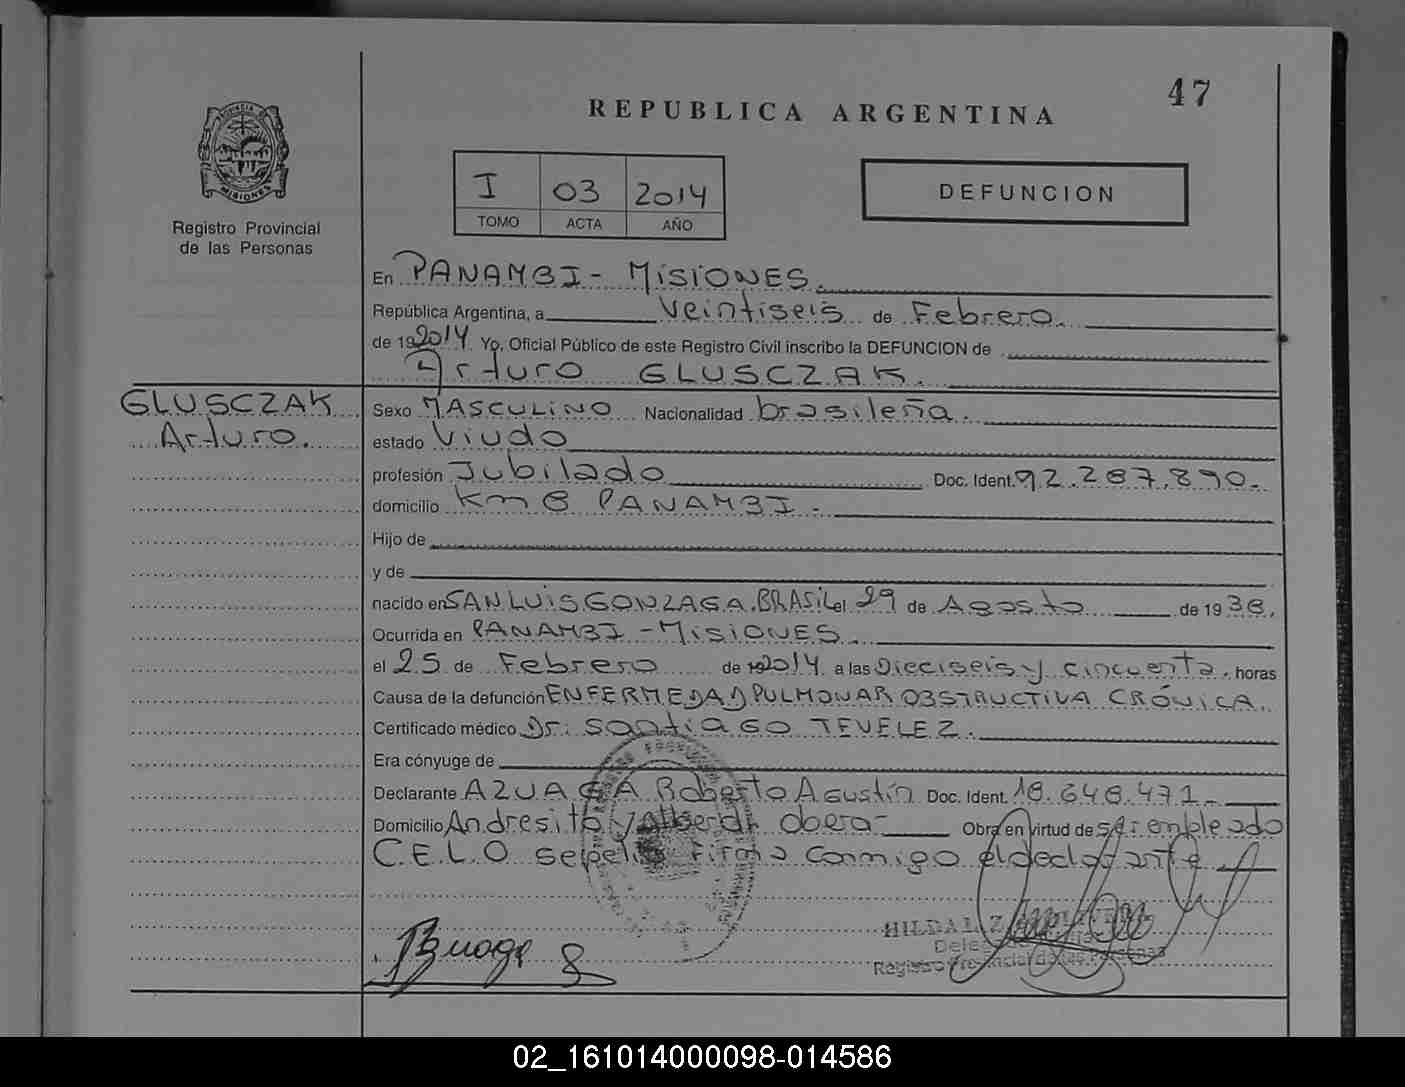 47
REPUBLICA ARGENTINA
PROVINCIA DE
MISIONES
Registro Provincial
de las Personas
I 03 2014
TOMO ACTA AÑO
DEFUNCION
En PANAMBI - MISIONES.
República Argentina, a veintiseis de Febrero.
de 19 2014 Yo, Oficial Público de este Registro Civil inscribo la DEFUNCION de
Arturo GLUSCZAK.
GLUSCZAK
Arturo.
Sexo MASCULINO Nacionalidad brasileña.
estado Viudo
profesión Jubilado Doc. Ident. 92.287.890.
domicilio Km 8 PANAMBI.
Hijo de
y de
nacido en SAN LUIS GONZAGA. BRASIL el 29 de Agosto de 1938.
Ocurrida en PANAMBI - MISIONES.
el 25 de Febrero de 19 2014 a las Dieciseis y cincuenta. horas
Causa de la defunción ENFERMEDAD PULMONAR OBSTRUCTIVA CRÓNICA.
Certificado médico Dr. Santiago TEVELEZ.
Era cónyuge de
Declarante AZUAGA Roberto Agustín Doc. Ident. 18.648.471.
Domicilio Andresito y Alberdi Obera Obra en virtud de ser empleado
C.E.L.O sepelio Firma conmigo el declarante
HILDA
Registro Provincial de las Personas
02_161014000098-014586